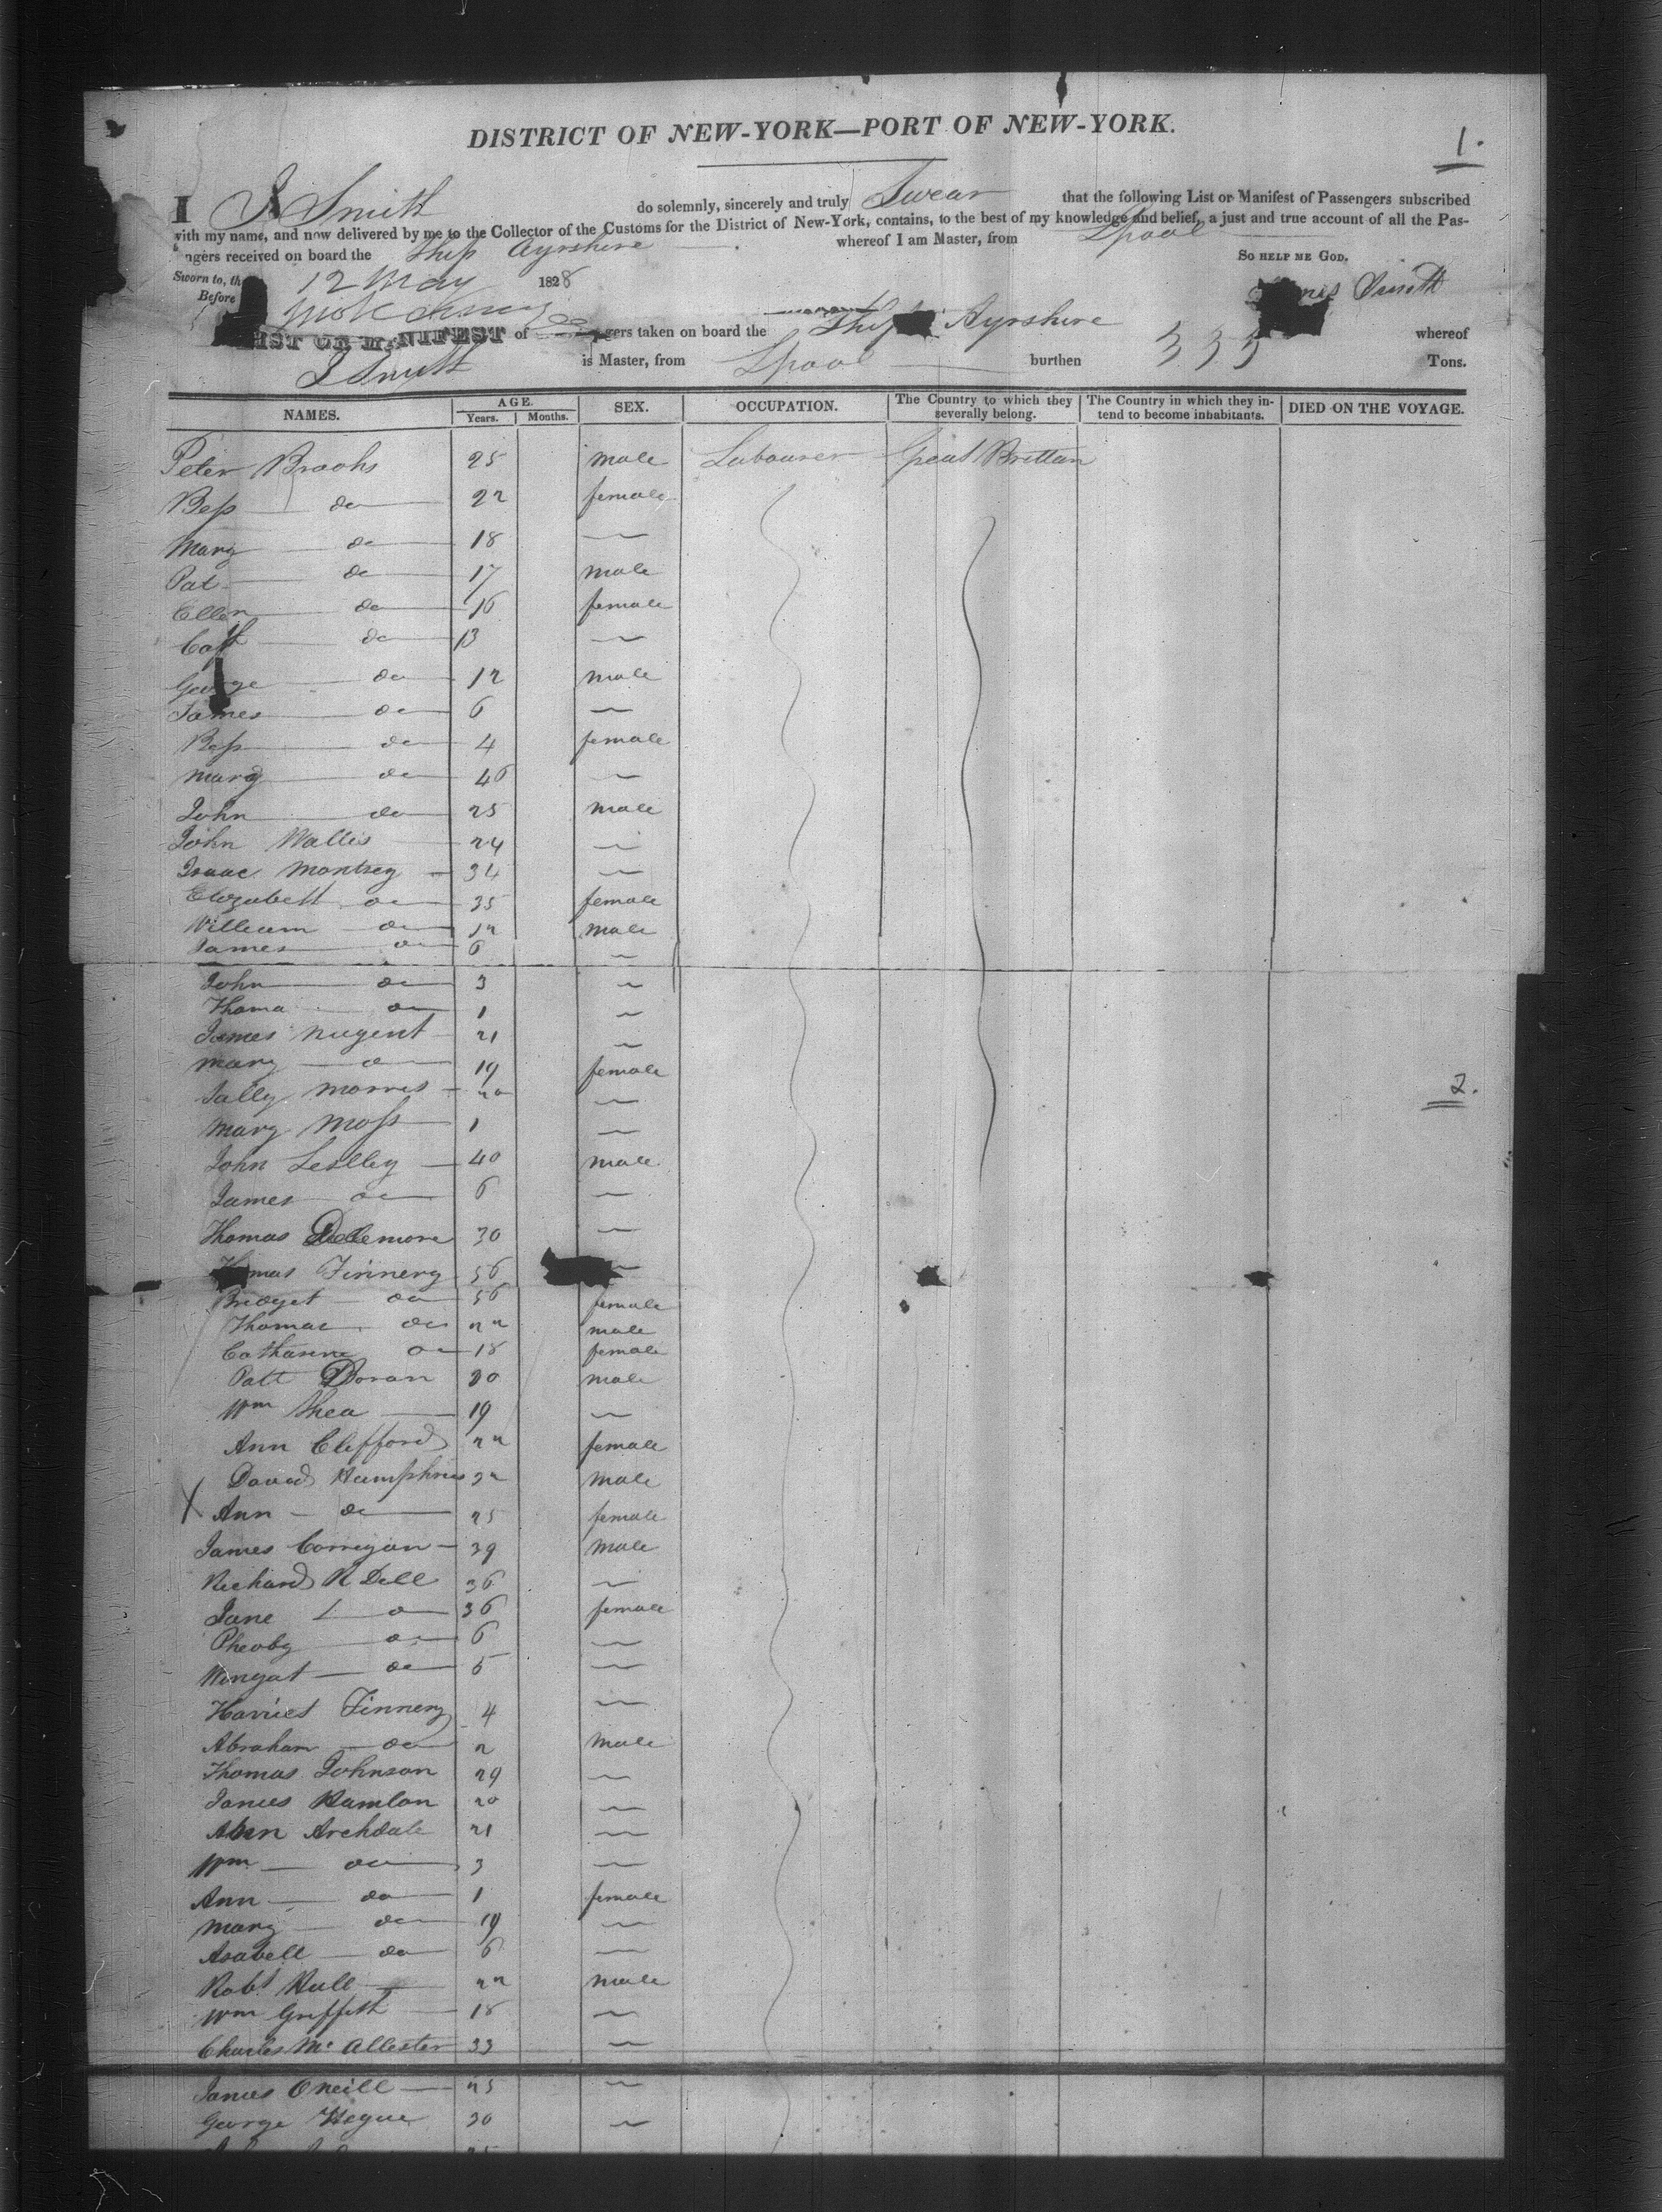 DISTRICT OF NEW-YORK—PORT OF NEW-YORK.
1.
I J Smith do solemnly, sincerely and truly Swear that the following List or Manifest of Passengers subscribed
with my name, and now delivered by me to the Collector of the Customs for the District of New-York, contains, to the best of my knowledge and belief, a just and true account of all the Pas-
ngers received on board the Ship Ayrshire whereof I am Master, from Lpool
So HELP ME GOD.
Sworn to, th 12 May 1828
Before
Smith
IST OR MANIFEST of gers taken on board the Ship Ayrshire whereof
J Smith is Master, from Lpool burthen 335 Tons.
NAMES. AGE. Years. Months. SEX. OCCUPATION. The Country to which they severally belong. The Country in which they intend to become inhabitants. DIED ON THE VOYAGE.
Peter Brooks 25 male Labourer Great Brittan
Bess do 22 female
Mary do 18 —
Pat do 17 male
Ellen do 16 female
Cath do 13 —
George do 12 male
James do 6 —
Bess do 4 female
Marg do 46 —
John do 25 male
John Wallis 24 —
Isaac Montsey 34 —
Elizabeth do 35 female
William do 12 male
James do 6 —
John do 3 —
Thoma do 1 —
James Nugent 21 —
Mary do 19 female
Sally Morris 20 —
2.
Mary Moss 1 —
John Leslley 40 male
James do 6 —
Thomas Dellemore 30 —
mas Finnery 56 —
Bridget do 56 female
Thomas do 22 male
Catharine do 18 female
Patt Doran 20 male
Wm Shea 19 —
Ann Clifford 22 female
David Humphries 32 male
X Ann do 25 female
James Corregan 39 male
Richard R Dell 36 —
Jane do 36 female
Pheoby do 6 —
Wingat do 5 —
Harriet Finnery 4 —
Abraham do 2 male
Thomas Johnson 29 —
James Hamlon 20 —
Archdale 21 —
Wm do 3 —
Ann do 1 female
Mary do 19 —
Asabell do 6 —
Robt Hull 22 male
Wm Griffith 18 —
Charles Mc Allester 33 —
James Oneill 25 —
George Hogue 30 —